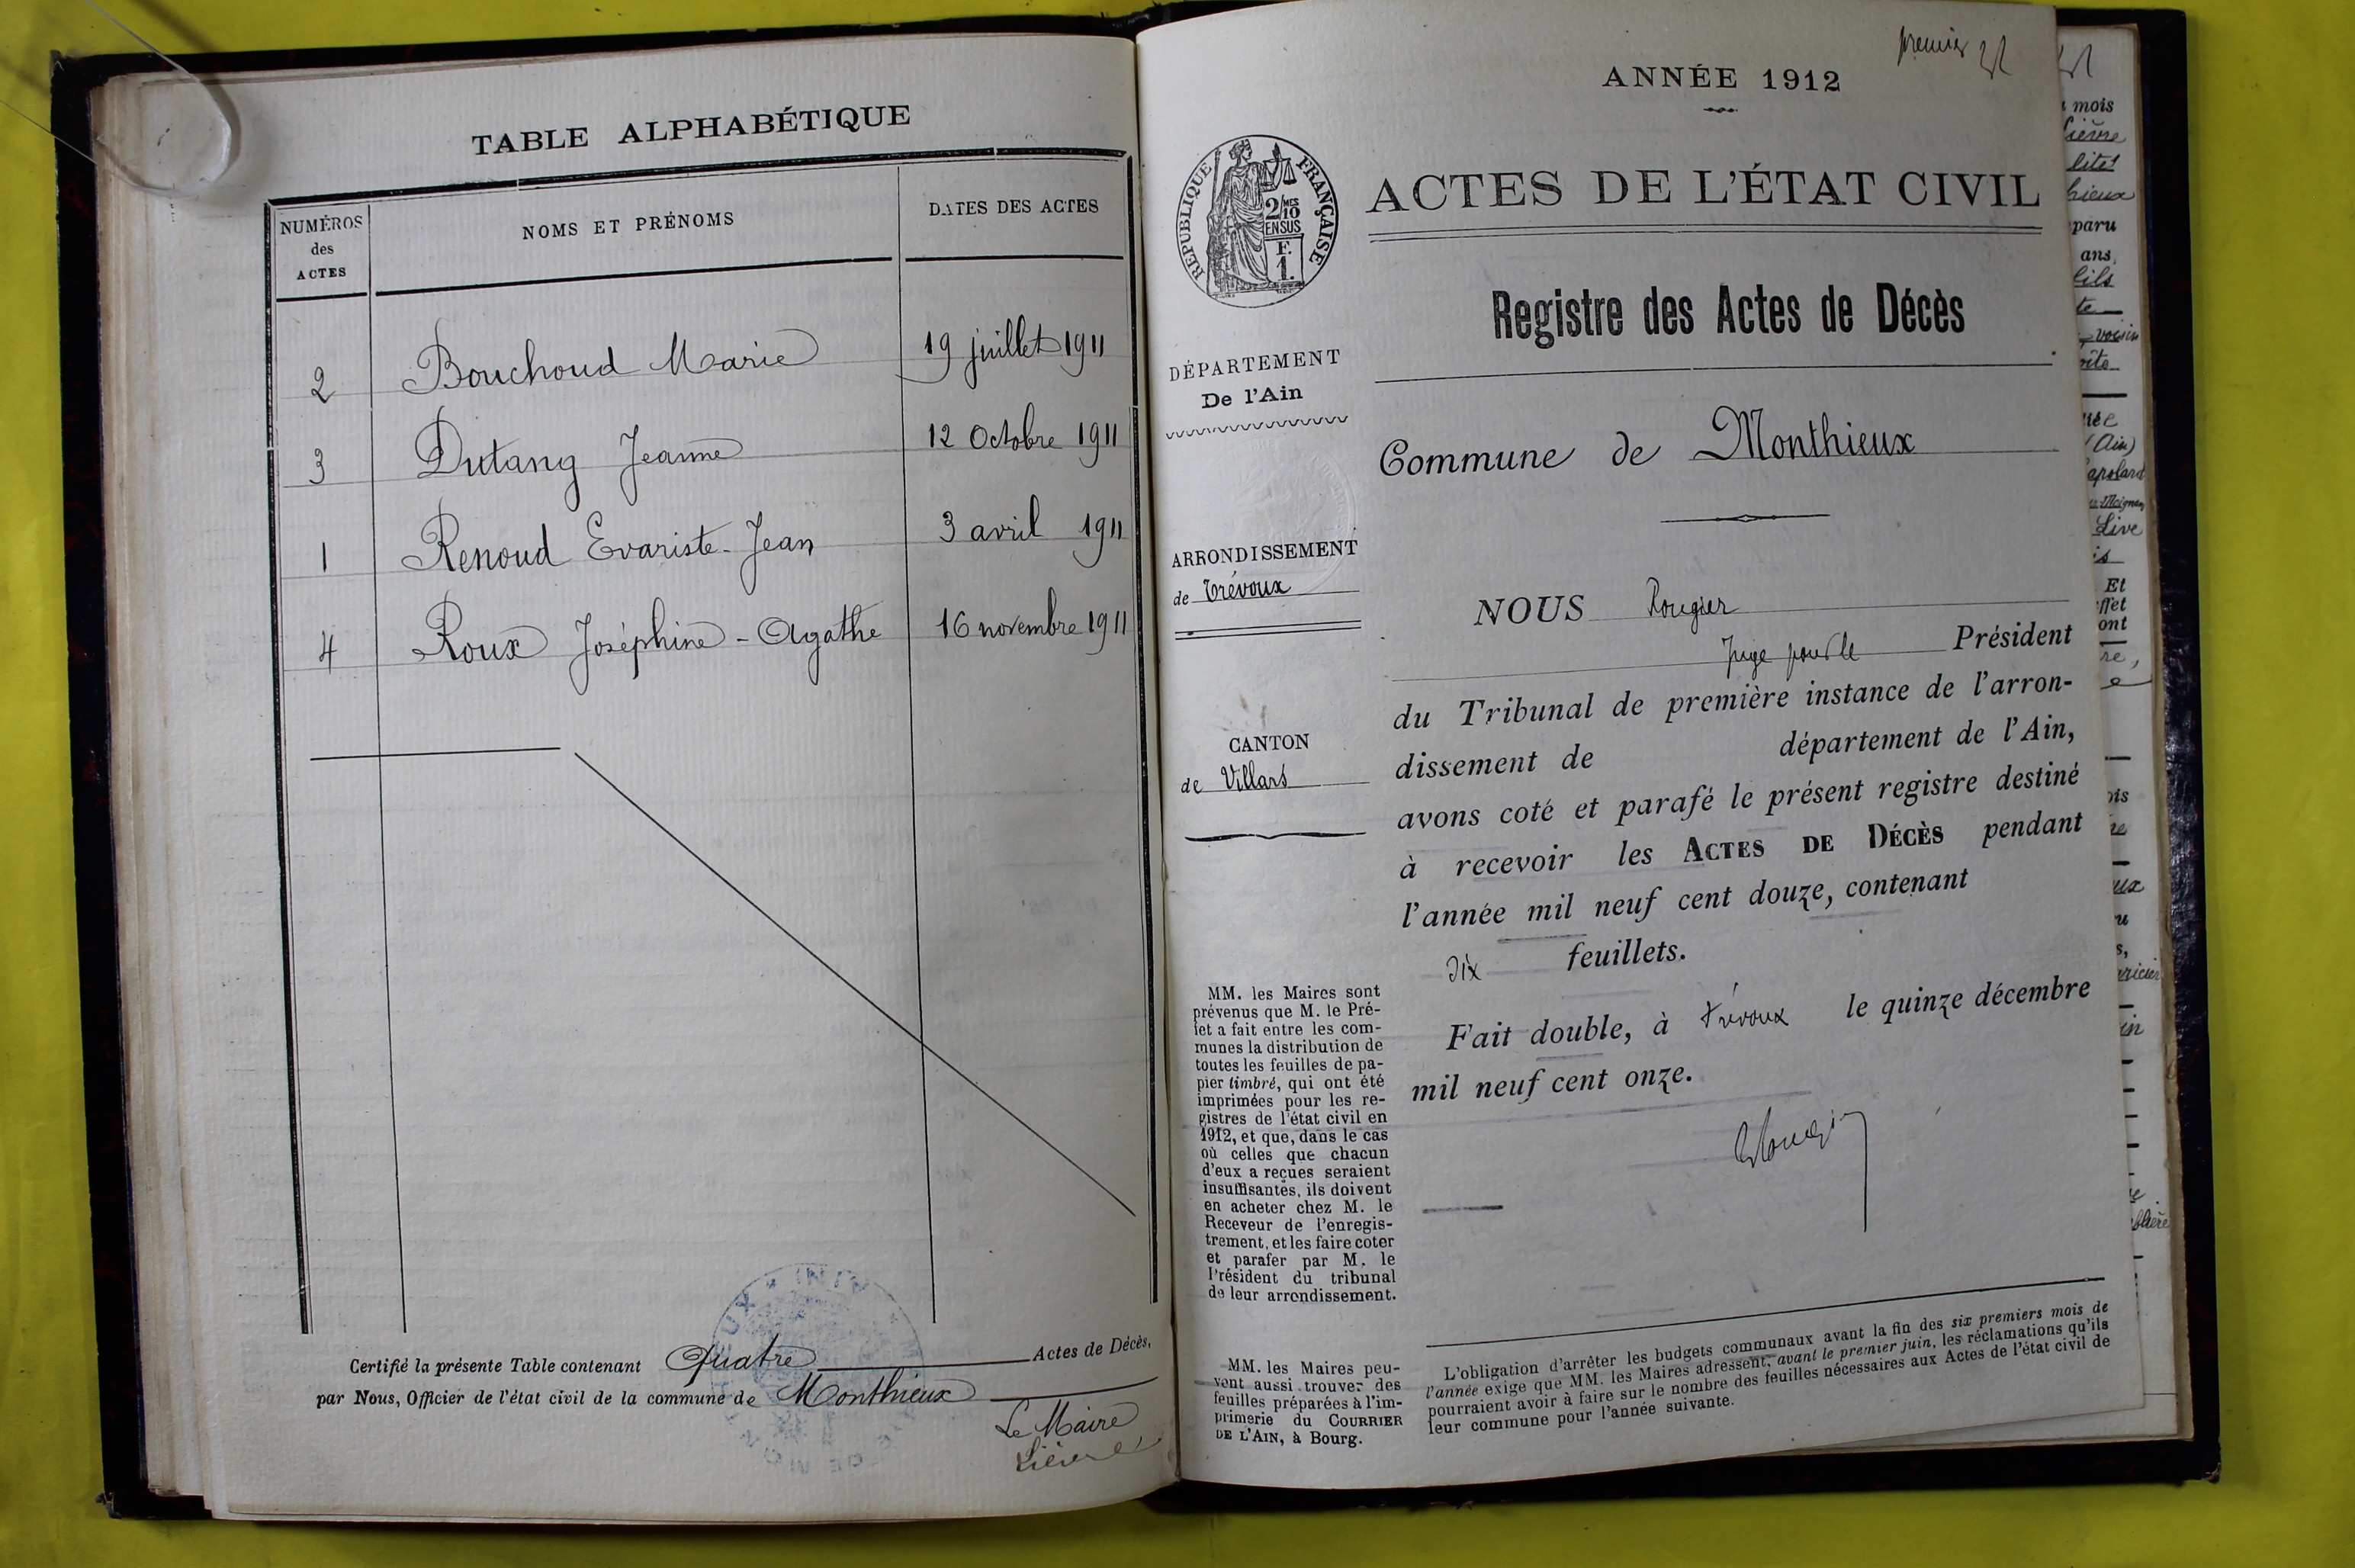 TABLE ALPHABÉTIQUE
NUMÉROS
des
ACTES
NOMS ET PRÉNOMS
DATES DES ACTES
2 Bouchoud Marie 19 juillet 1911
3 Dutang Jeanne 12 Octobre 1911
1 Renoud Evariste-Jean 3 avril 1911
4 Roux Joséphine-Agathe 16 novembre 1911
Certifié la présente Table contenant Quatre Actes de Décès,
par Nous, Officier de l'état civil de la commune de Monthieux
Le Maire
Lièvre
premier
ANNÉE 1912
RÉPUBLIQUE FRANÇAISE
2/10 MES
EN SUS
F.
1.
ACTES DE L'ÉTAT CIVIL
Registre des Actes de Décès
DÉPARTEMENT
De l'Ain
Commune de Monthieux
ARRONDISSEMENT
de Trévoux
CANTON
de Villars
NOUS Rougier
Juge pour le Président
du Tribunal de première instance de l'arron-
dissement de département de l'Ain,
avons coté et parafé le présent registre destiné
à recevoir les ACTES DE DÉCÈS pendant
l'année mil neuf cent douze, contenant
dix feuillets.
Fait double, à Trévoux le quinze décembre
mil neuf cent onze.
MM. les Maires sont
prévenus que M. le Pré-
fet a fait entre les com-
munes la distribution de
toutes les feuilles de pa-
pier timbré, qui ont été
imprimées pour les re-
gistres de l'état civil en
1912, et que, dans le cas
où celles que chacun
d'eux a reçues seraient
insuffisantes, ils doivent
en acheter chez M. le
Receveur de l'enregis-
trement, et les faire coter
et parafer par M. le
Président du tribunal
de leur arrondissement.
MM. les Maires peu-
vent aussi trouver des
feuilles préparées à l'im-
primerie du COURRIER
DE L'AIN, à Bourg.
L'obligation d'arrêter les budgets communaux avant la fin des six premiers mois de
l'année exige que MM. les Maires adressent, avant le premier juin, les réclamations qu'ils
pourraient avoir à faire sur le nombre des feuilles nécessaires aux Actes de l'état civil de
leur commune pour l'année suivante.
mois
paru
ans,
(Ain)
Et